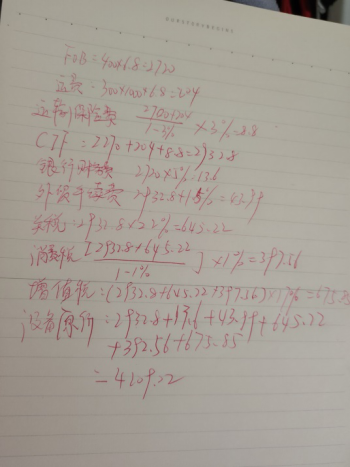 FOB: 400×6.8=2720
运费: 300×1000×6.8=204
运输保险费 2720+204/1-3‰ ×3‰=8.8
CIF: 2720+204+8.8=2932.8
银行财务费 2720×5‰=13.6
外贸手续费 2932.8×1.5%=43.99
关税: 2932.8×22%=645.22
消费税 [2932.8+645.22/1-1%]×1%=397.56
增值税: (2932.8+645.22+397.56)×17%=675.85
设备原价: 2932.8+13.6+43.99+645.22
+392.56+675.85
=4109.22